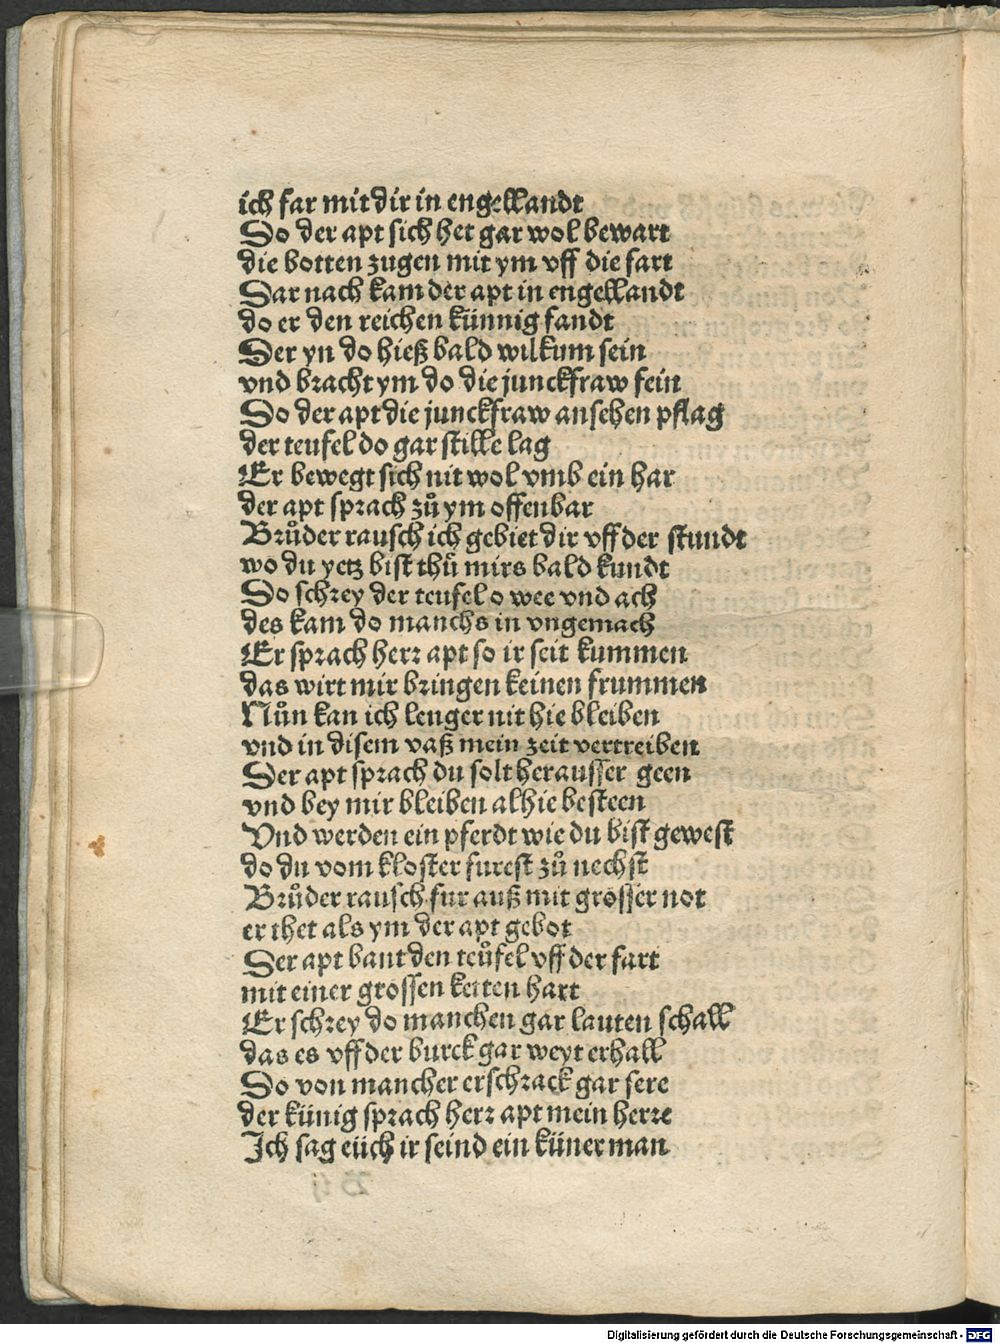 ich far mit dir in engellandt
Do der apt sich het gar wol bewart
die botten zugen mit ym vff die fart
Dar nach kam der apt in engellandt
do er den reichen künnig fandt
Der yn do hieß bald wilkum sein
vnd bracht ym do die junckfraw fein
Do der apt die junckfraw ansehen pflag
der teufel do gar stille lag
Er bewegt sich nit wol vmb ein har
der apt sprach zů ym offenbar
Brůder rausch ich gebiet dir vff der stundt
wo du yetz bist thů mirs bald kundt
Do schrey der teufel o wee vnd ach
des kam do manchs in vngemach
Er sprach herr apt so ir seit kummen
das wirt mir bringen keinen frummen
Nůn kan ich lenger nit hie bleiben
vnd in disem vaß mein zeit vertreiben
Der apt sprach du solt herausser geen
vnd bey mir bleiben alhie besteen
Vnd werden ein pferdt wie du bist gewest
do du vom kloster furest zů nechst
Brůder rausch fur auß mit grosser not
er thet als ym der apt gebot
Der apt bant den teůfel vff der fart
mit einer grossen ketten hart
Er schrey do manchen gar lauten schall
das es vff der burck gar weyt erhall
Do von mancher erschrack gar sere
der künig sprach herr apt mein herre
Ich sag eüch ir seind ein küner man
Digitalisierung gefördert durch die Deutsche Forschungsgemeinschaft - DFG